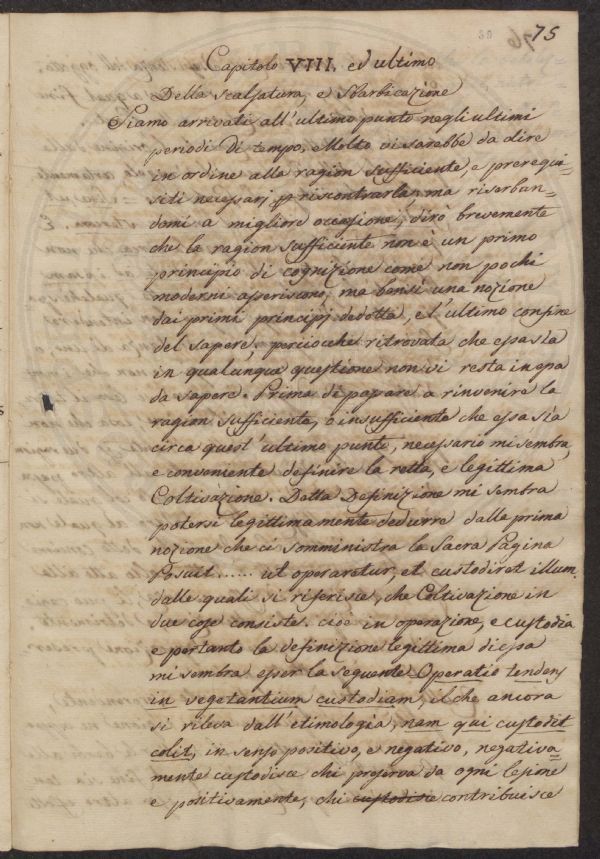 30 75
Capitolo VIII. ed ultimo
Della scalsatura, e Sbarbicazione
Siamo arrivati all'ultimo punto negli ultimi
periodi di tempo, e Molto vi sarebbe da dire
in ordine alla ragion sufficiente, e prerequi=
siti necessarj p riscontrarla, ma riserban=
domi a migliore occasione, dirò brevemente
che la ragion sufficiente non è un primo
principio di cognizione come non pochi
moderni asseriscono, ma bensì una nozione
dai primi principj dedotta, e l'ultimo confine
del sapere, perciocche ritrovata che essa sia
in qualunque questione non vi resta in essa
da sapere. Prima di passare a rinvenire la
ragion sufficiente, o insufficiente che essa sia
circa quest'ultimo punto, necessario mi sembra,
e conveniente definire la retta, e legittima
Coltivazione. Detta Definizione mi sembra
potersi legittimamente dedurre dalla prima
nozione che ci somministra la Sacra Pagina
Posuit ...... ut operaretur, et custodiret illum.
dalle quali si riferisce, che Coltivazione in
due cose consiste. cioè in operazione, e custodia
e pertanto la definizione legittima di essa
mi sembra esser la seguente Operatio tendens
in vegetantium custodiam, il che ancora
si rileva dall'etimologia, nam qui custodit
colit, in senso positivo, e negativo, negativa=
mente custodisce chi preserva da ogni lesione
e positivamente, chi custodisce contribuisce